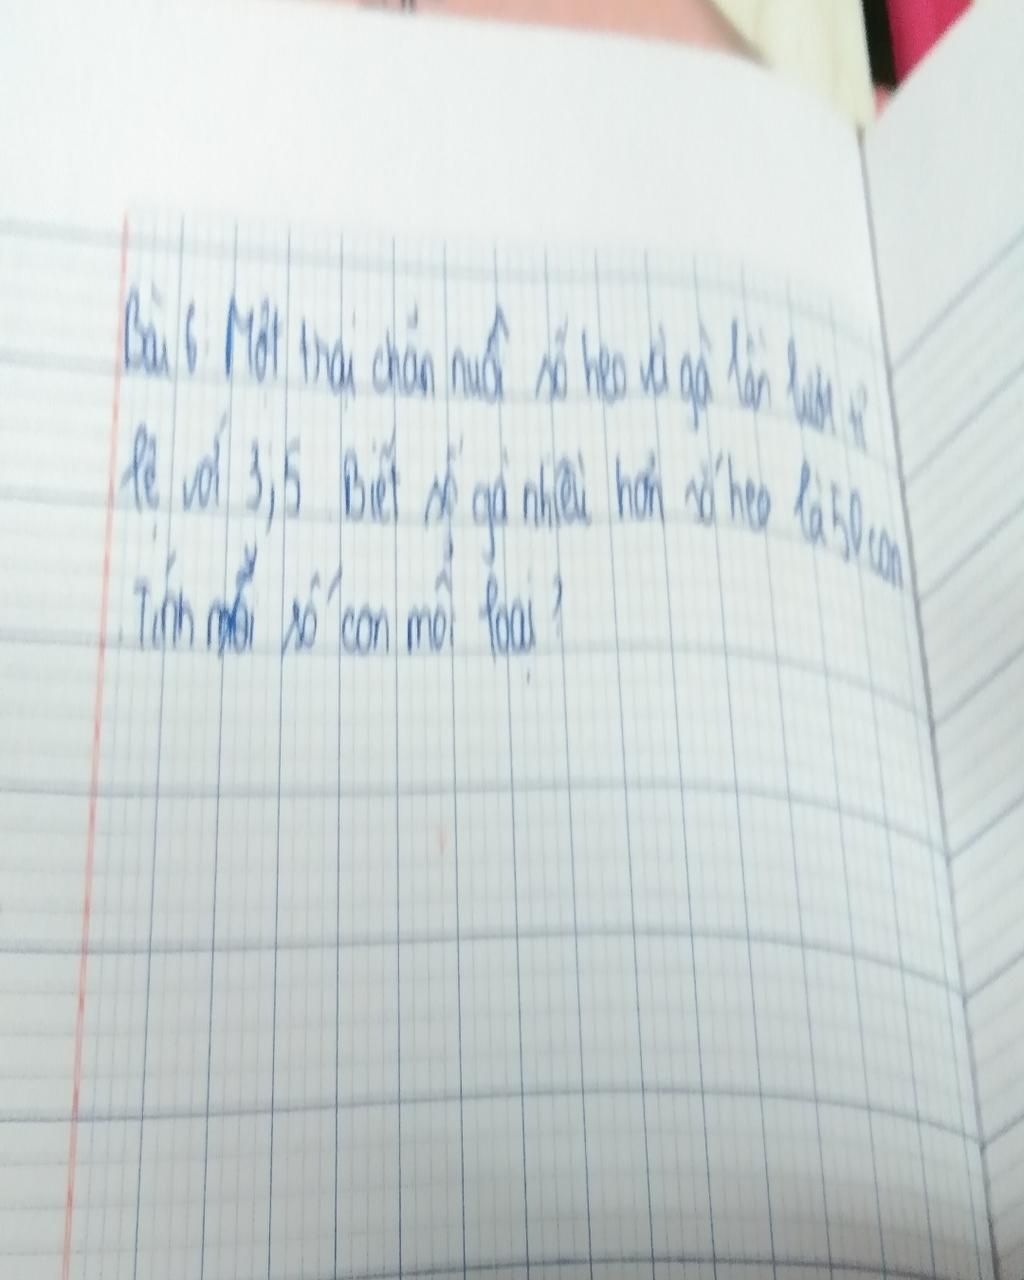 Bài 6: Một trại chăn nuôi số heo và gà lần lượt tỉ
lệ với 3; 5 Biết số gà nhiều hơn số heo là 50 con
Tính số con mỗi loại?